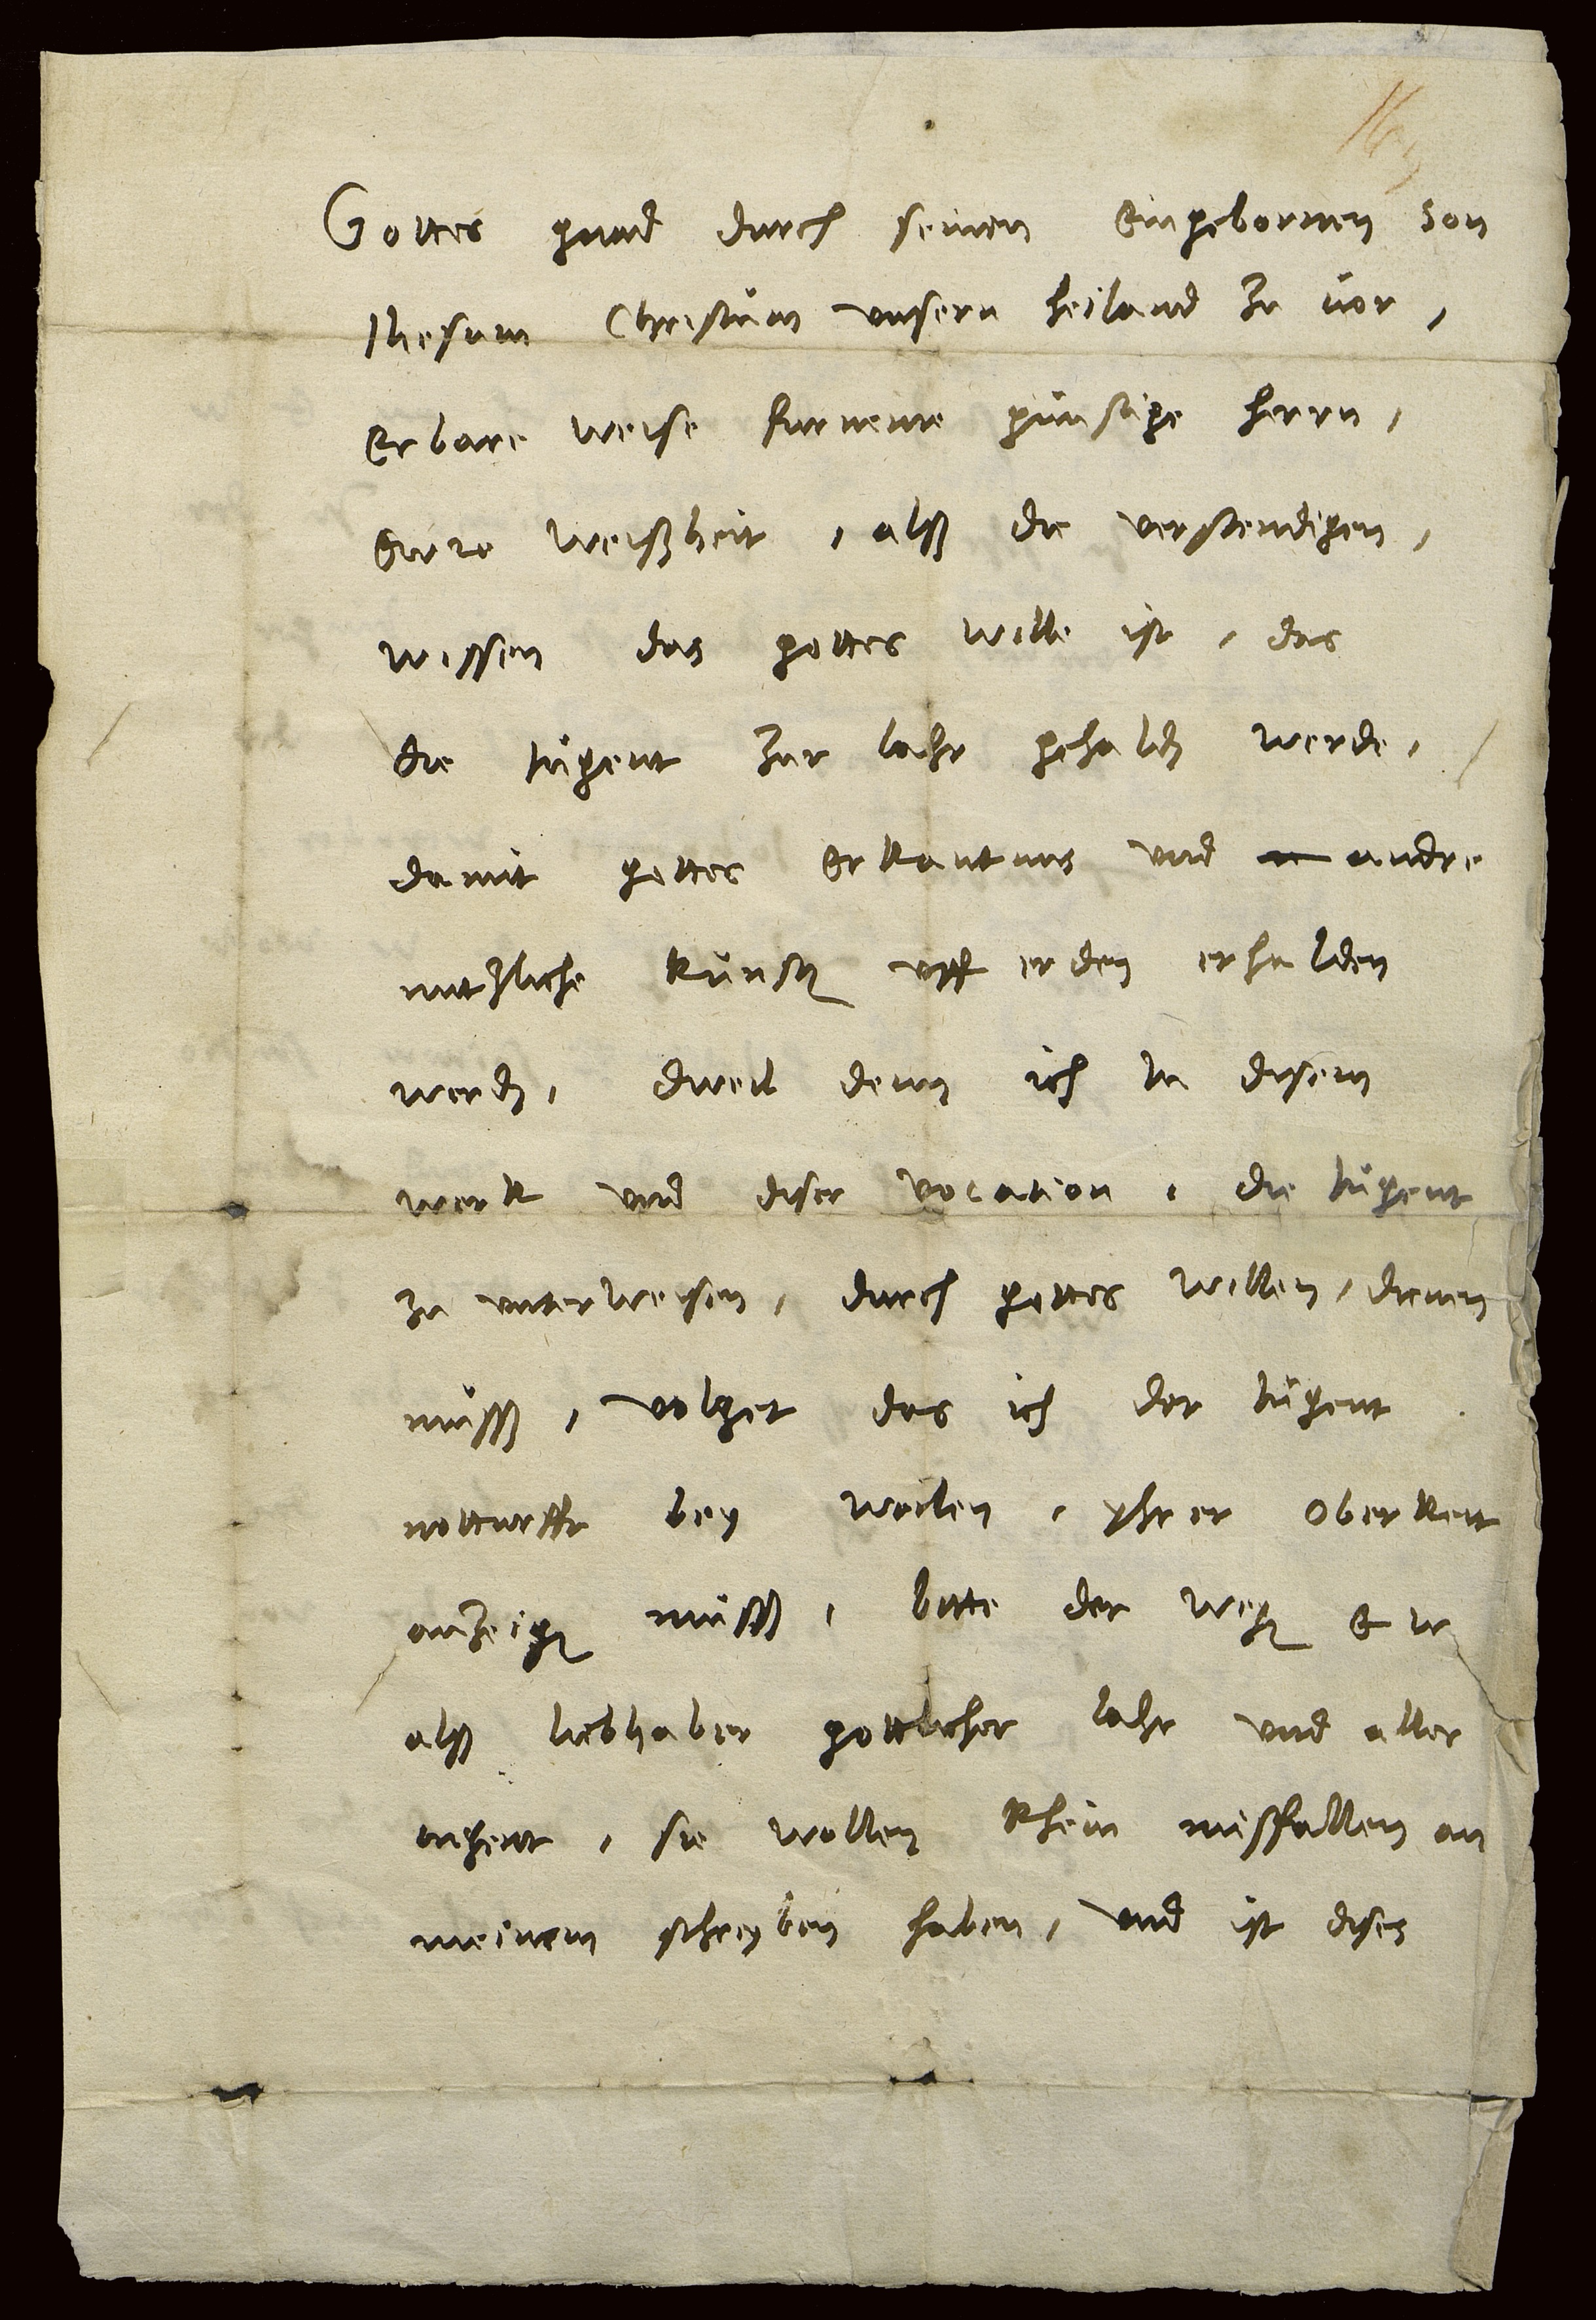 Gottes gnad durch seinen Eingebornen Son
Ihesum Christum vnsern heiland zu uor,
Erbare weise furneme gunstige herrn,
Ewre weißheit, alß die verstendigen,
wissen das gottes wille ist, das
die iugent zur lahr gehaldn werde,
damit gottes Erkantnus vnd andre
nuthzliche kunstn vff erden erhalden
werdn, dweil denn ich in disem
werk vnd diser vocation, die iugent
zu vnterweisen, durch gottes willen, dienen
muss, volget das ich der iugent
notturfft bey weilen, yhrer Oberkeit
anzeign muss, bitte der wegn E w
alß liebhaber gottlicher lahr vnd aller
tugent, sie wollen khein misfallen an
meinem schreyben haben, vnd ist dises